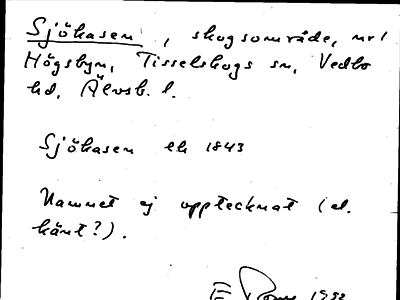 Sjökasen, skogsområde, nr 1
Högsbyn, Tisselskogs sn, Vedbo
hd, Älvsb. l.
Sjökasen ek 1843
Namnet ej upptecknat (el.
känt?).
E 1932